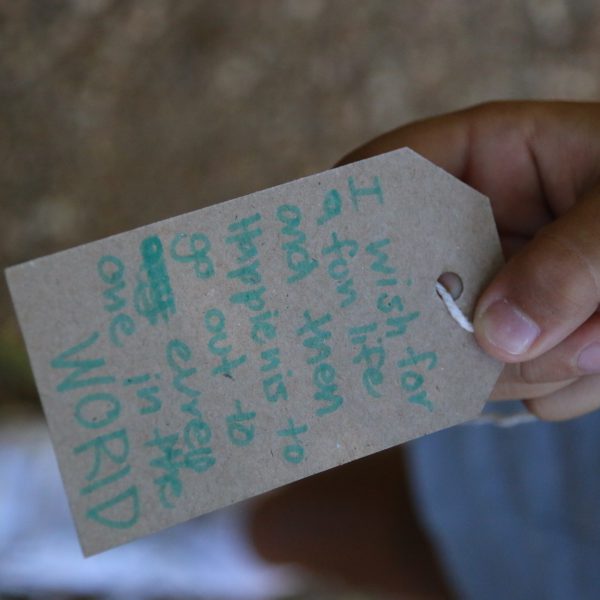 I wish for
a fun life
and then
Happienis to
go out to
evrey
one in the
WORlD